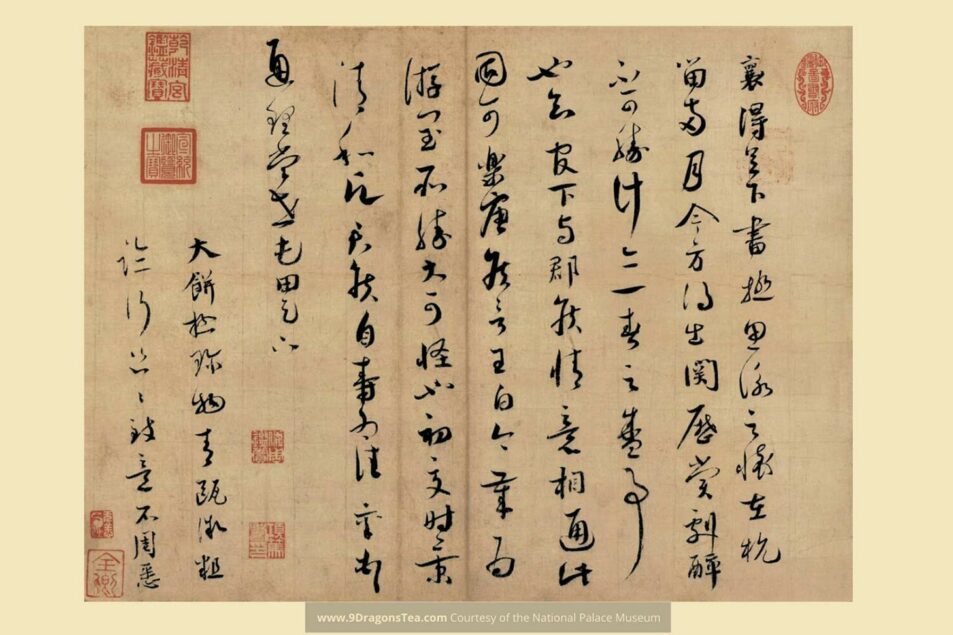 襄得足下書極思詠之懷在杭
留兩月今方得出關歷賞劇醉
不可勝計亦一春之盛事
也知官下與郡侯情意相通此
固可樂唐侯言王白今歲為
游閏所勝大可怪也初夏時景
清和願君侯自壽為佳襄頓首
通理當世屯田足下
大餅極珍物青甌微粗
臨行匆匆致意不周悉
乾清宮鑑藏寶
宣統御覽之寶
全卿
www.9DragonsTea.com Courtesy of the National Palace Museum